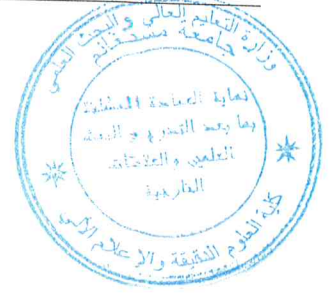 وزارة التعليم العالي و البحث العلمي
جامعة مستغانم
نيابة العمادة المكلفة
بما بعد التدرج و البحث
العلمي و العلاقات
الخارجية
كلية العلوم الدقيقة والإعلام الآلي